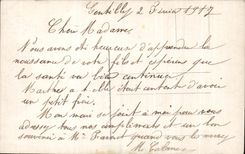 Gentilly 2 Février 1917
Chère Madame
Nous avons été heureux d'apprendre la
naissance de votre fils et espérons que
la santé va bien continuer
a elle tout content d'avoir
un petit frère.
Mon mari se joint à moi pour vous
adresser tous nos compliments et un bon
souvenir à Mr quand vous le verrez
M.